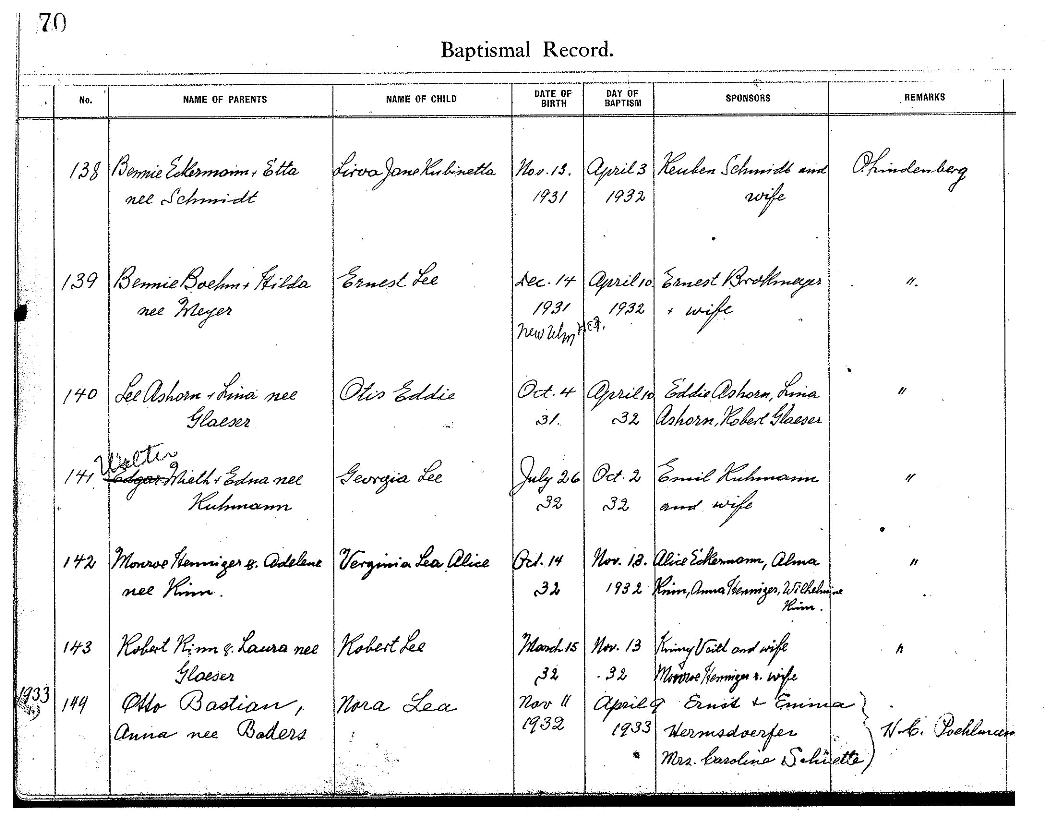 70
Baptismal Record.
No. NAME OF PARENTS NAME OF CHILD DATE OF BIRTH DAY OF BAPTISM SPONSORS REMARKS
138 Bennie Eckermann + Etta Lirva Jane Rubinetta Nov. 13. April 3 Reuben Schmidt and P. Lindenberg
nee Schmidt 1931 1932 wife
139 Bennie Boehm + Hilda Ernest Lee Dec. 14 April 10 Ernest Brotkmeyer "
nee Meyer 1931 1932 + wife
New Ulm
140 Lee Ashorn + Lina nee Otis Eddie Oct. 4 April 10 Eddie Ashorn, Lina "
Glaeser 31. 32 Ashorn, Robert Glaeser
Walter
141 Edgar Mieth + Edna nee Georgia Lee July 26 Oct. 2 Emil Kuhmann "
Kuhmann 32 32 and wife
142 Monroe Henniger & Adelene Verginia Lea Alice Oct. 14 Nov. 13. Alice Eckermann, Alma "
nee Rinn. 32 1932 Rinn, Anna Henniger, Wilhelmine
Rinn.
143 Robert Rinn & Laura nee Robert Lee March 15 Nov. 13 Veith and wife "
Glaeser 32 .32 Monroe Henniger & wife
1933 144 Otto Bastian, Nora Lea Nov 11 April 9 Ernst + Emma
Anna nee Baders 1932 1933 Hermsdoerfer H. C. Poehlmann
Mrs. Caroline Schüette